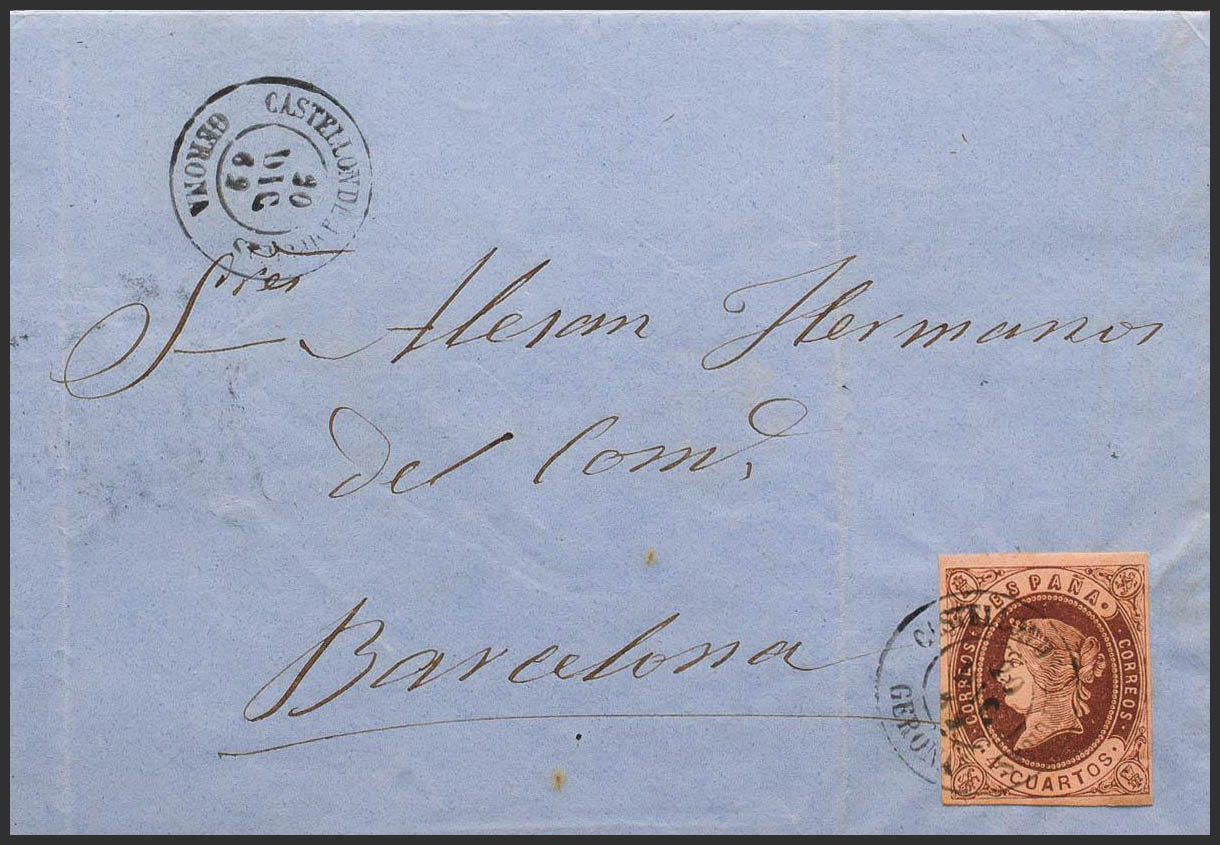 CASTELLON DE
GERONA
30
DIC
Sres Alesan Hermanos
del Como,
Barcelona
ESPAÑA
CORREOS
CORREOS
CUARTOS
GERONA